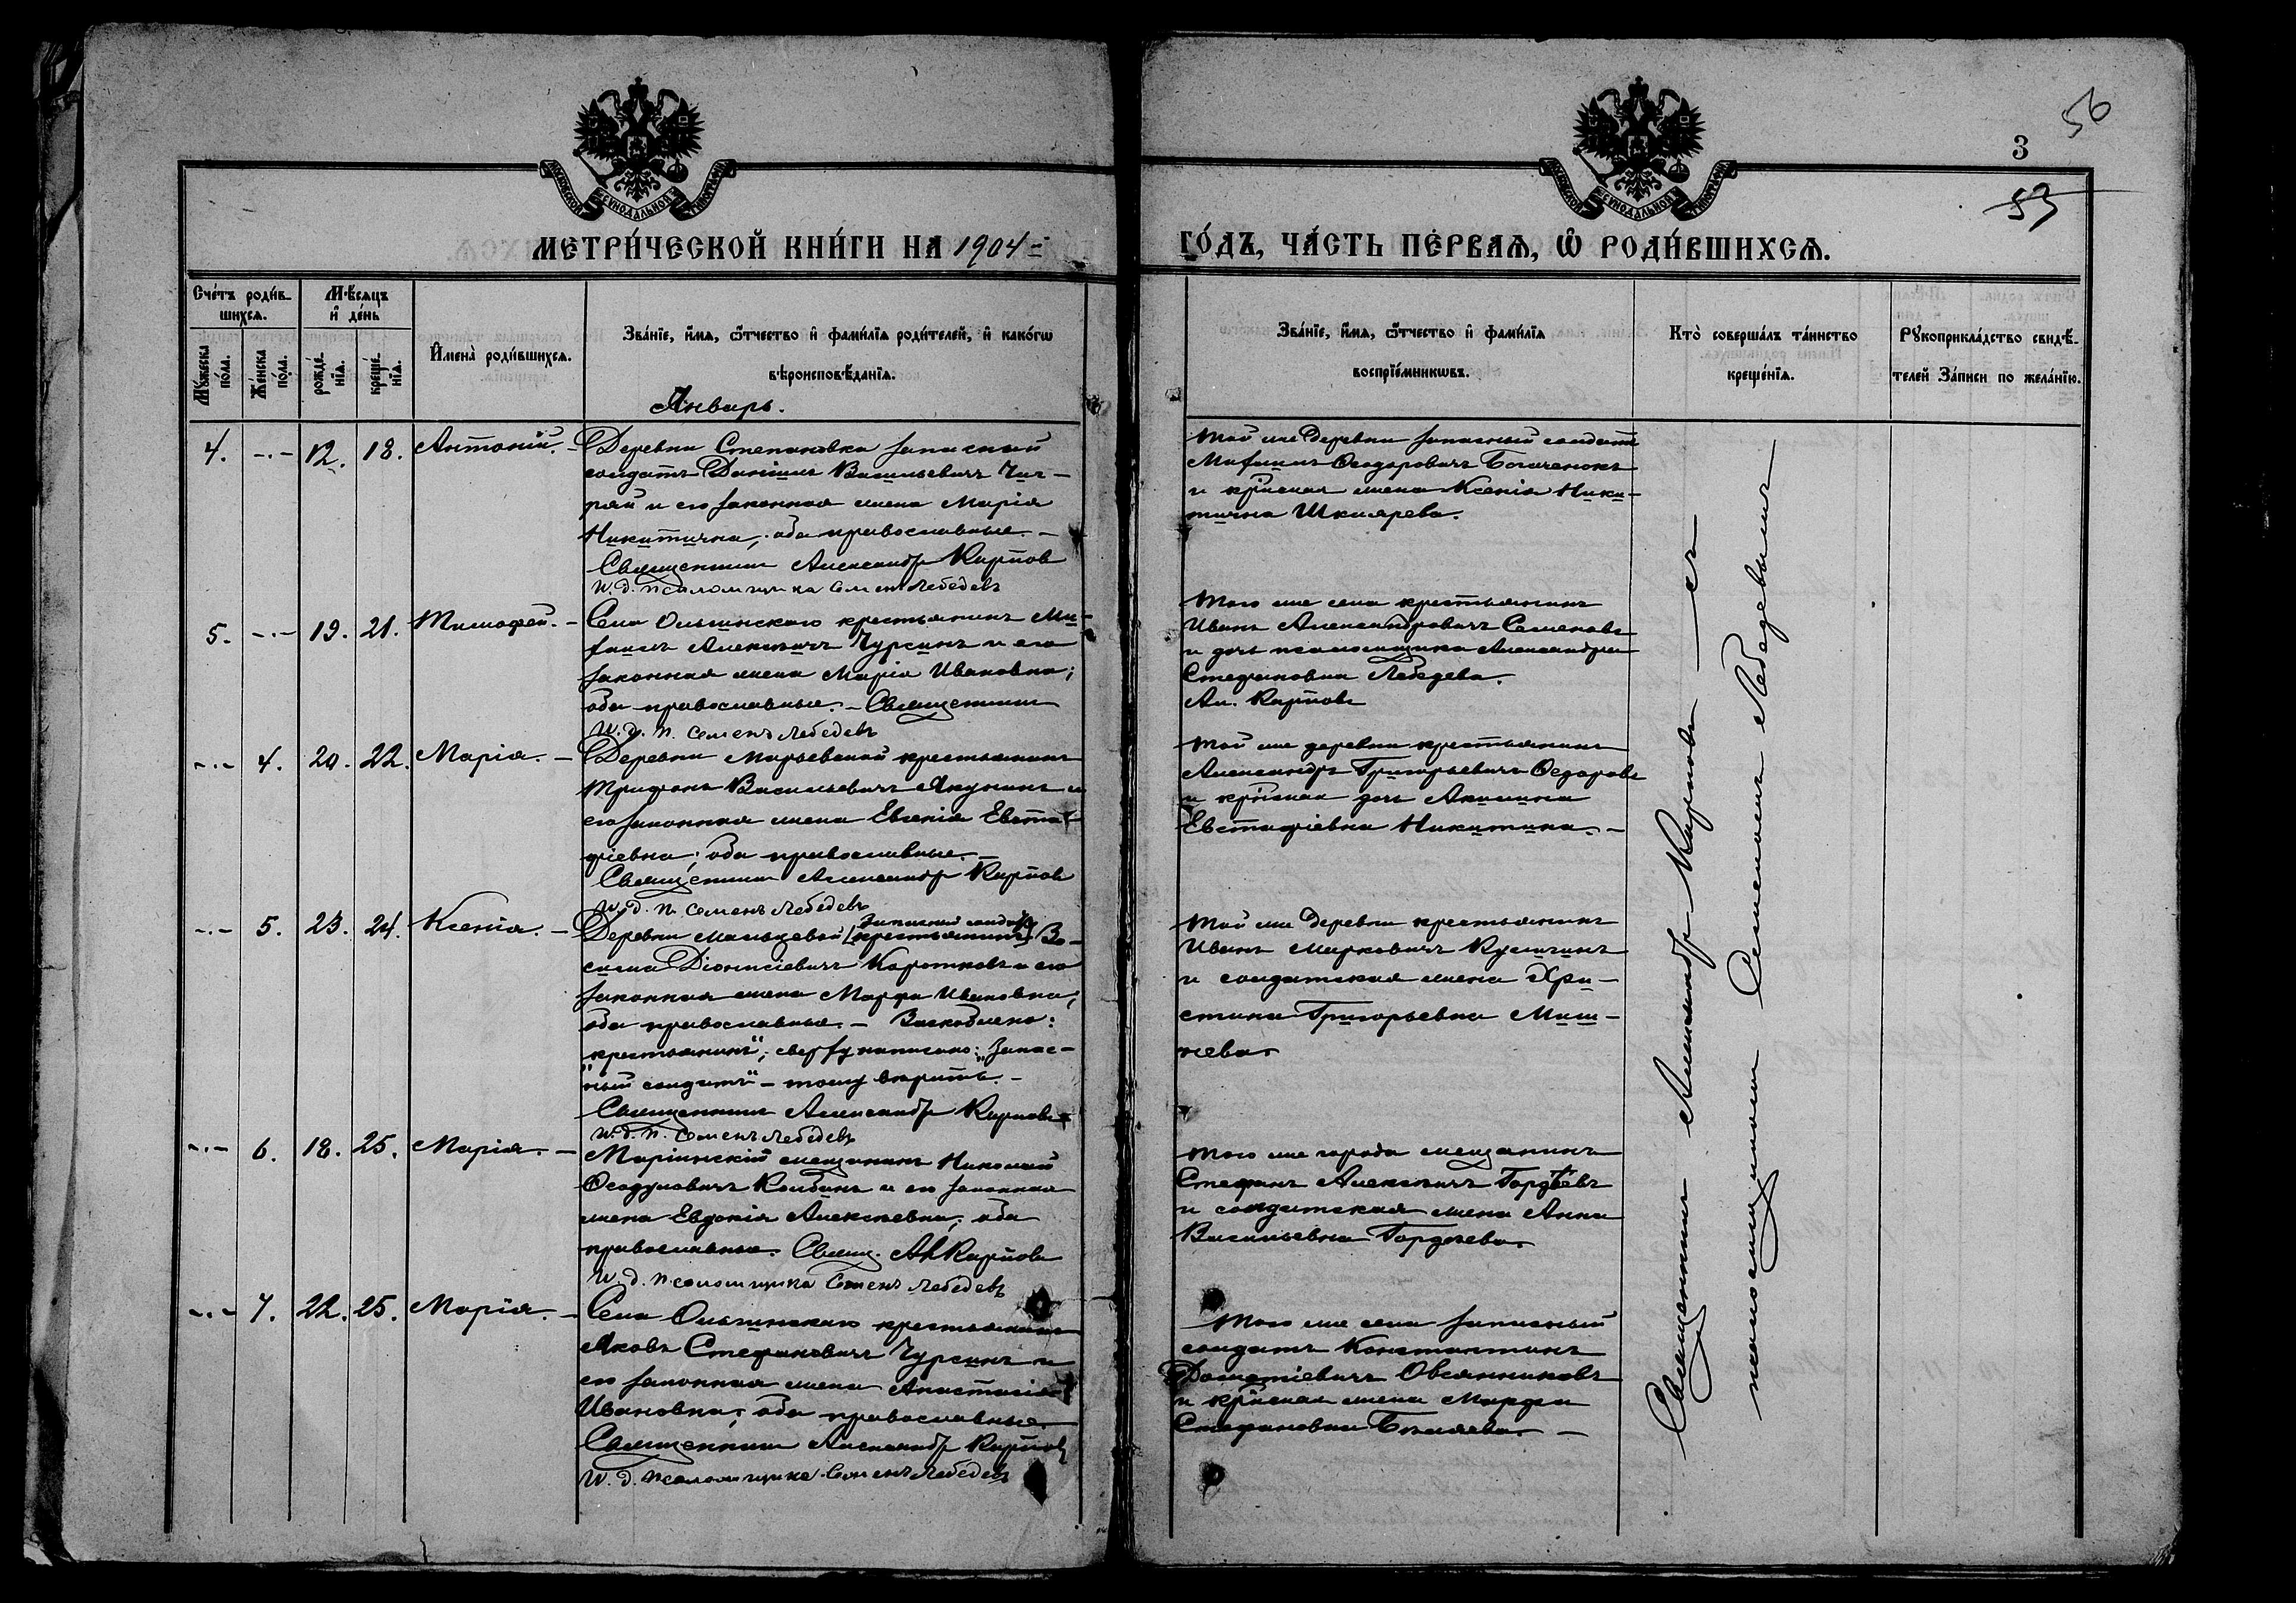 56
3
53
МОСКОВСКОЙ СѴНОДАЛЬНОЙ ТИПОГРАФІИ
МОСКОВСКОЙ СѴНОДАЛЬНОЙ ТИПОГРАФІИ
МЕТРИ́ЧЕСКОЙ КНИ́ГИ НА 1904
ГО́ДЪ, ЧА́СТЬ ПЕ́РВАѦ, Ѡ҆ РОДИ́ВШИХСѦ.
Сче́тъ роди́в-
шихсѧ.
Мꙋ́жеска по́ла.
Же́нска по́ла.
Мѣ́сѧцъ и҆ де́нь
рожде́нїѧ.
креще́нїѧ.
И҆мена̀ роди́вшихсѧ.
Зва́нїе, и҆́мѧ, ѻ҆́тчество и҆ фами́лїѧ роди́телей, и҆ како́гѡ
вѣроисповѣ́данїѧ.
Зва́нїе, и҆́мѧ, ѻ҆́тчество и҆ фами́лїѧ
воспрїе́мникѡвъ.
Кто̀ соверша́лъ та́инство
креще́нїѧ.
Рꙋкоприкла́дство свидѣ́-
телей за́писи по жела́нїю.
Январь.
4. -.- 12. 18. Антоній. -
Деревни Степановка запасный
солдатъ Даніилъ Васильевичъ Чиг-
рай и его законная жена Марія
Никитична; оба православные. -
Священникъ Александръ Карповъ
И. д. псаломщика Семенъ Лебедевъ
Той же деревни запасный солдатъ
Михаилъ Ѳеодоровичъ Богаченокъ
и кр-нская жена Ксенія Ники-
тична Шкларева.
5. -.- 19. 21. Тимофей. -
Села Ольгинскаго крестьянинъ Ми-
хаилъ Алексѣевичъ Чурсинъ и его
законная жена Марія Ивановна;
оба православные. - Священникъ
И. д. п. Семенъ Лебедевъ
Того же села крестьянинъ
Иванъ Александровичъ Семеновъ
и дочь псаломщика Александра
Стефановна Лебедева.
Ал. Карповъ
-.- 4. 20. 22. Марія. -
Деревни Марьевской крестьянинъ
Трифонъ Васильевичъ Якунинъ и
его законная жена Евгенія Евста-
фіевна; оба православные. -
Священникъ Александръ Карповъ
И. д. п. Семенъ Лебедевъ
Той же деревни крестьянинъ
Александръ Григорьевичъ Ѳедоровъ
и кр-нская дочь Акилина
Евстафіевна Никитина. -
-.- 5. 23. 24. Ксенія. -
запасный солдатъ
Деревни Мальцевой [крестьянинъ] Ва-
силій Діонисіевичъ Коротковъ и его
законная жена Марфа Ивановна;
оба православные. - Выскоблено:
"крестьянинъ"; сверху написано: "Запас-
ный солдатъ" - тому вѣрить. -
Священникъ Александръ Карповъ
И. д. п. Семенъ Лебедевъ
Той же деревни крестьянинъ
Иванъ Марковичъ
и солдатская жена Хри-
стина Григорьевна Миш-
нева.
-.- 6. 18. 25. Марія. -
Маріинскій мещанинъ Николай
Ѳеодуловичъ Колбинъ и его законная
жена Евдокія Алексѣевна; оба
православные. Свящ. Ал Карповъ
И. д. псаломщика Семенъ Лебедевъ
Того же города мещанинъ
Стефанъ Алексѣевичъ Гордѣевъ
и солдатская жена Анна
Васильевна Гордѣева.
-.- 7. 22. 25. Марія. -
Села Ольгинскаго крестьянинъ
Яковъ Стефановичъ Чурсинъ и
его законная жена Анастасія
Ивановна; оба православные.
Священникъ Александръ Карповъ
И. д. псаломщика Семенъ Лебедевъ
Того же села запасный
солдатъ Константинъ
Дометіевичъ Овсянниковъ
и кр-нская жена Марфа
Стефановна
Священникъ Александръ Карповъ — съ
псаломщикомъ Семеномъ Лебедевымъ